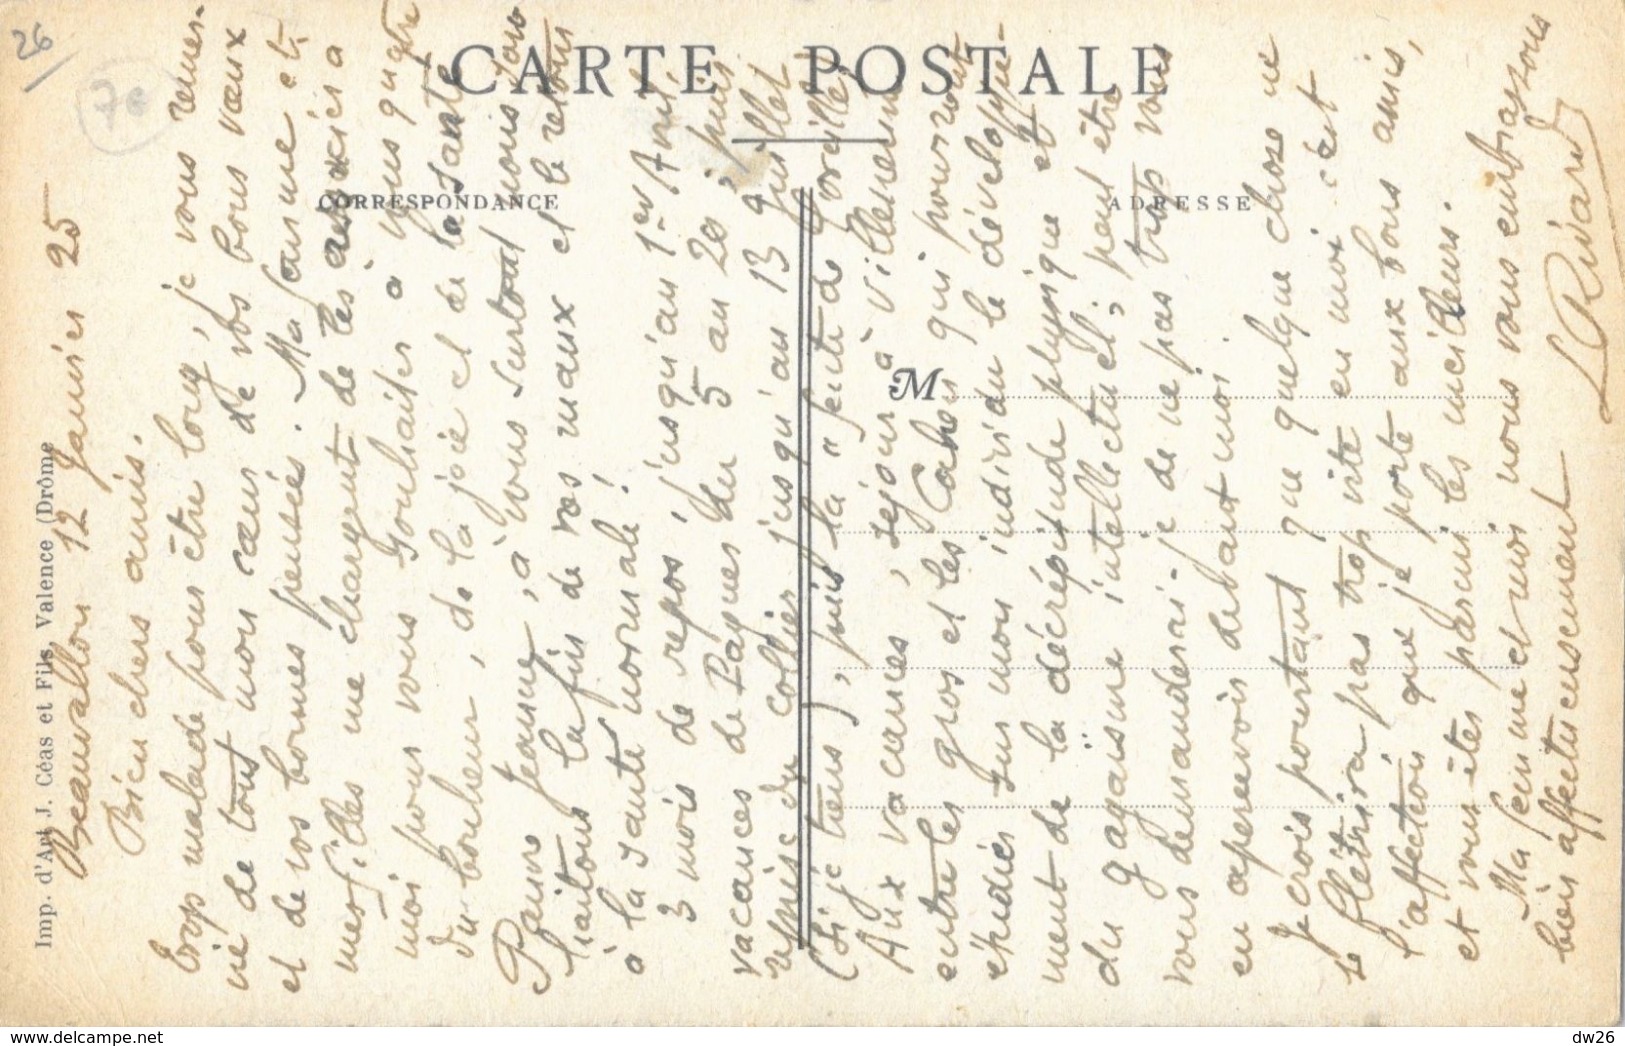 26
7€
CARTE POSTALE
CORRESPONDANCE
ADRESSE
M
Imp. d'Art J. Céas et Fils, Valence (Drôme
Beauvallon 12 Janvier 25
Bien chers amis.
Trop malade pour être long, je vous remer-
cie de tout mon cœur de vos bons vœux
et de vos bonnes pensées. Ma femme et
mes filles me chargent de les associer à
moi pour vous souhaiter à vous quatre
du bonheur, de la joie et de la santé
Pauvre Jeanne, à vous surtout nous sou
haitons la fin de vos maux et le retour
à la santé normale!
3 mois de repos jusqu'au 1er Avril
vacances de Pâques du 5 au 20, puis
reprise du collier jusqu'au 13 Juillet
(si je tiens), puis la "fente de l'oreille"
Aux vacances, séjour à Villeneuve
entre les gros et les Cahen qui pourront
étudier sur mon individu le développe-
ment de la décrépitude physique et
du gagaisme intellectuel; peut être
vous demanderai-je de ne pas trop vous
en apercevoir devant moi.
Je crois pourtant que quelque chose ne
se flétrira pas trop vite en moi: c'est
l'affection que je porte aux bons amis,
et vous êtes parmi les meilleurs.
Ma femme et moi nous vous embrassons
bien affectueusement
L Rivard
delcampe.net
dw26